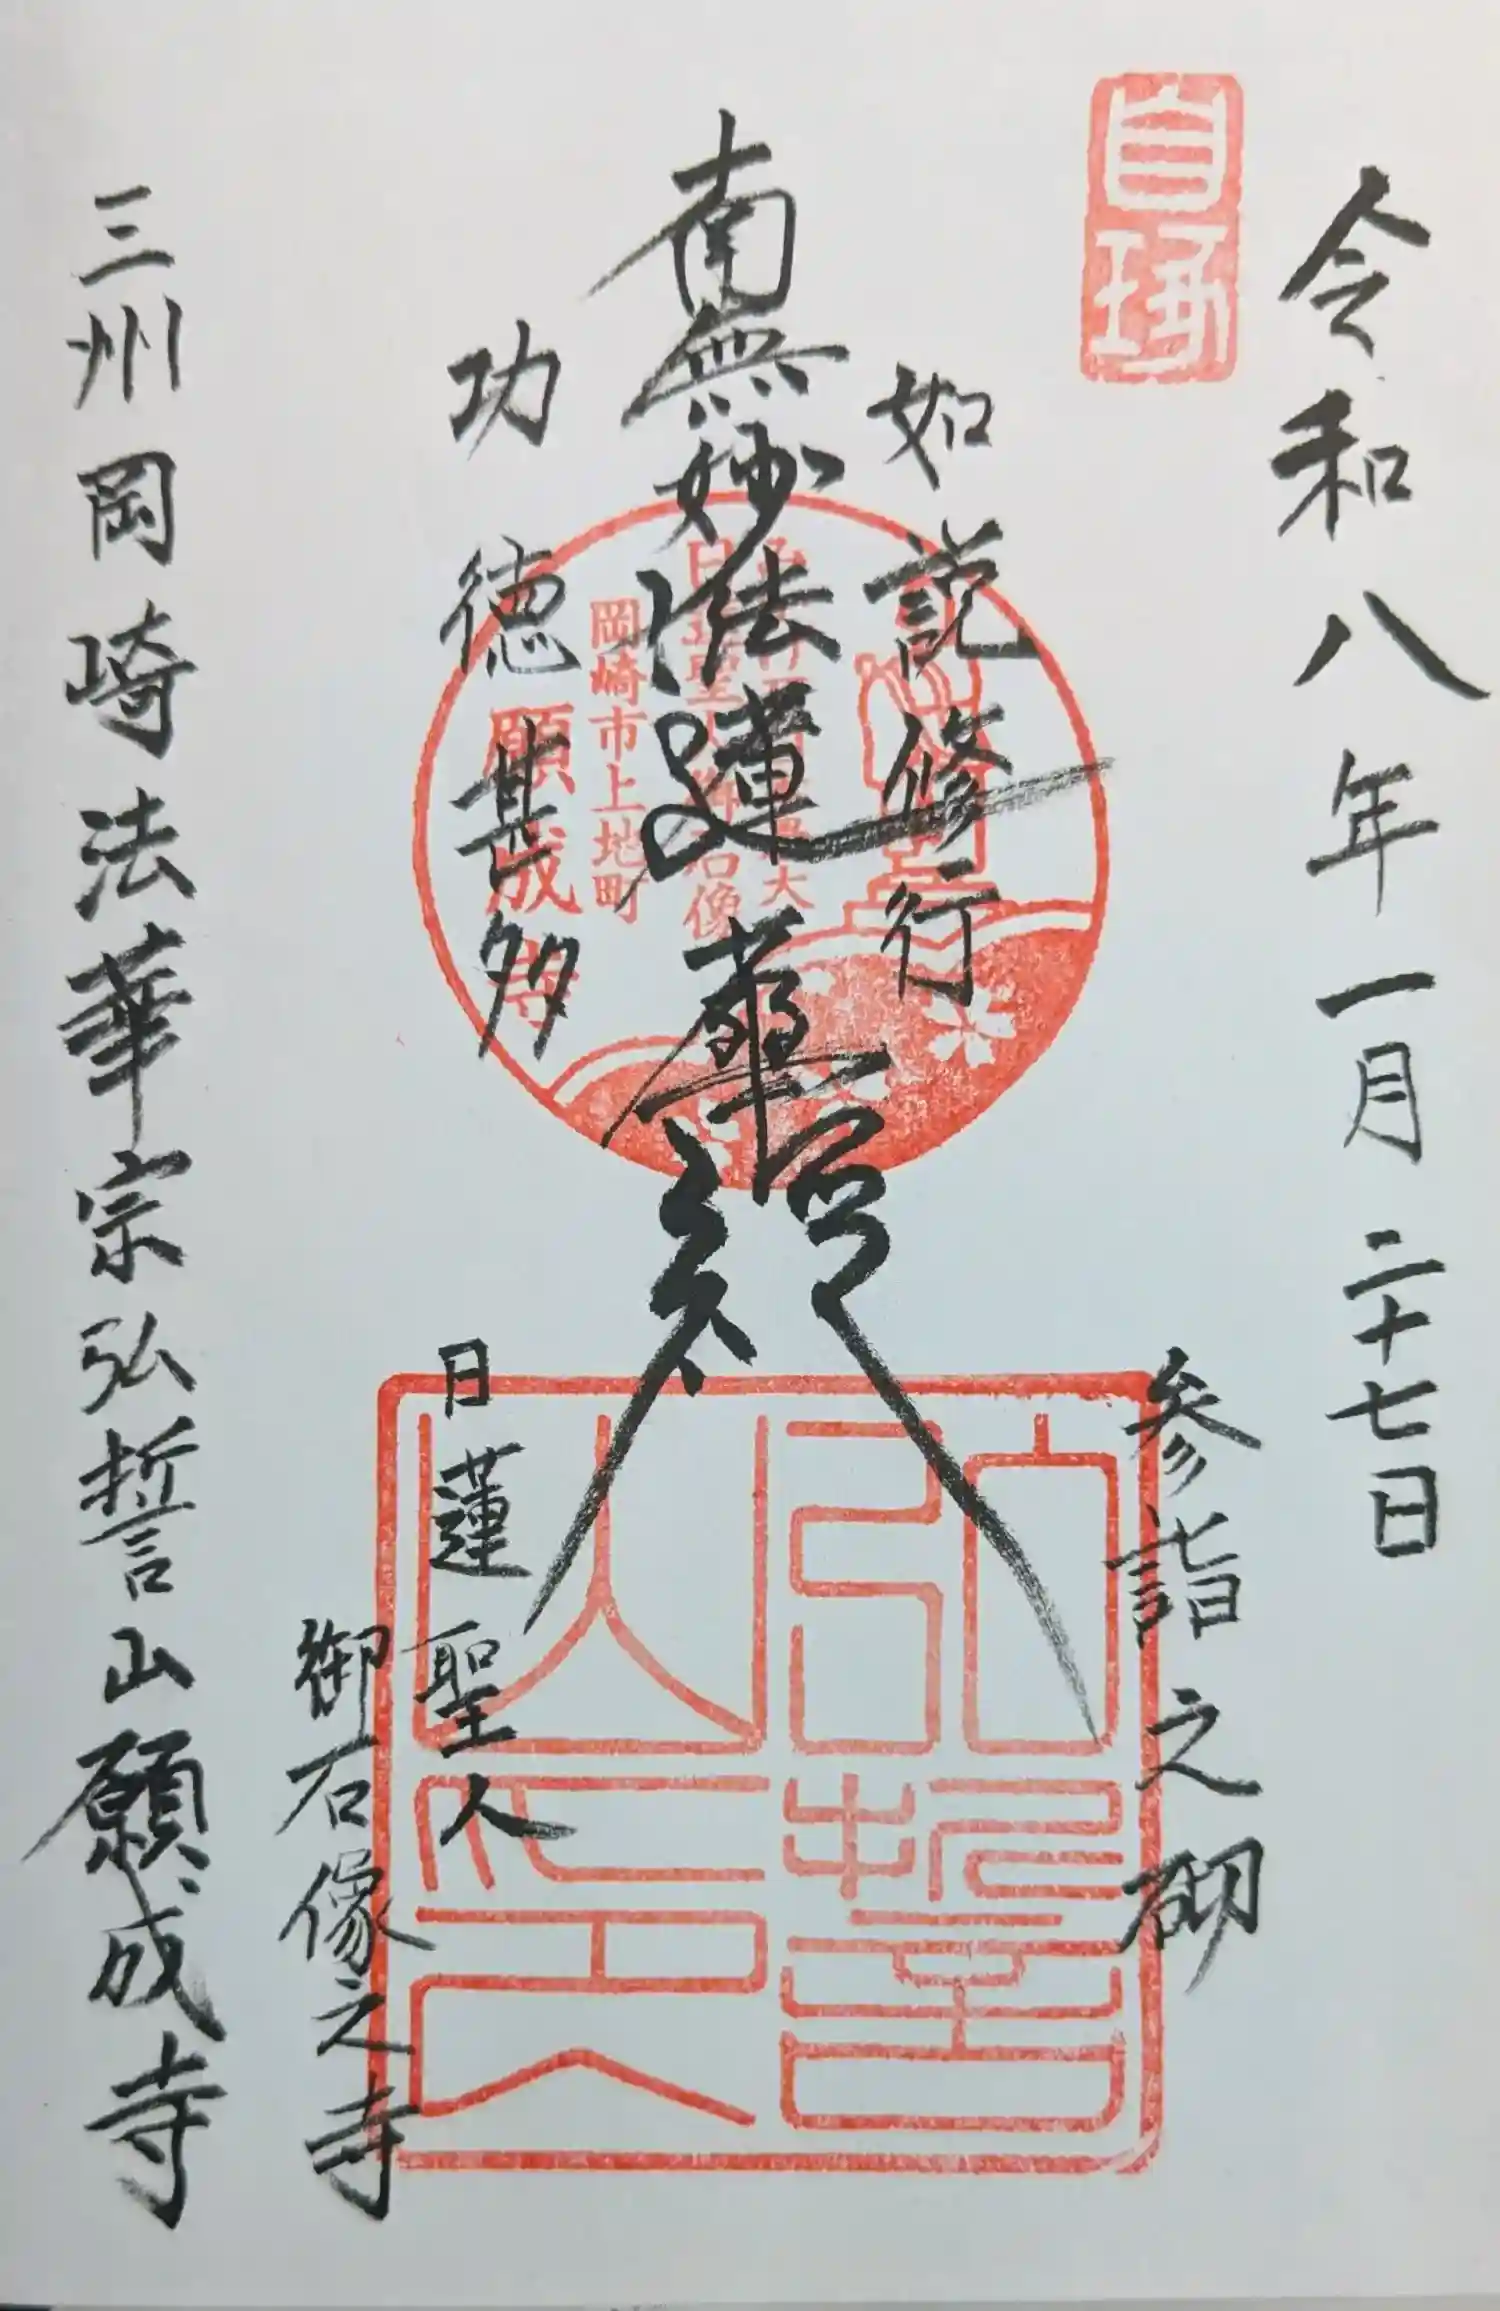 令和八年一月二十七日
参詣之砌
如説修行
南無妙法蓮華経
功徳甚多
日蓮聖人
御石像之寺
三州岡崎法華宗弘誓山願成寺
日蓮聖人御石像
岡崎市上地町
願成寺
弘誓山印